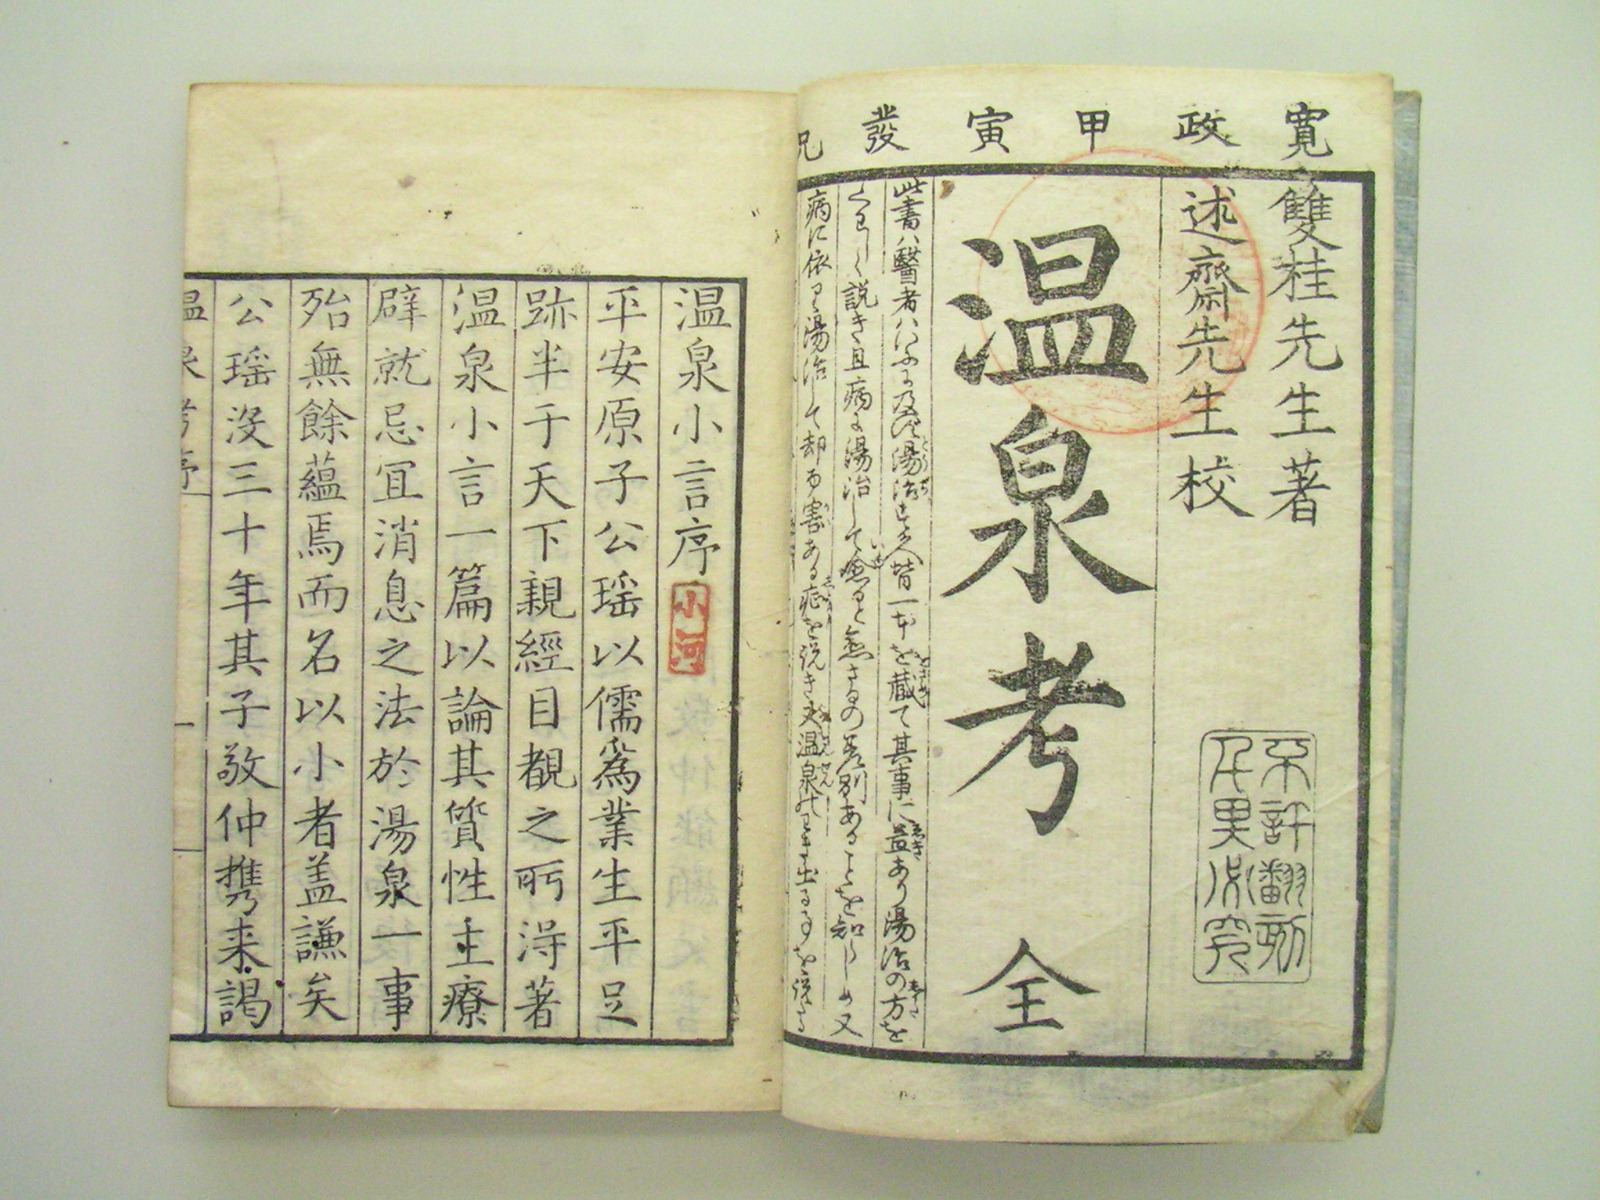 寛政甲寅發兌
雙桂先生著
述齋先生校
不許翻刻
千里必究
温泉考 全
此書ハ醫者ハいふに及ハず湯治する人皆一本を蔵て其事に益あり湯治の方を
くわしく説き且病に湯治して愈ると愈さるの差別あることを知らしめ又
病に依り湯治して却而害ある症を説き又温泉のわき出る事を説る
温泉小言序
小河
平安原子公瑶以儒爲業生平足
跡半于天下親經目覩之所得著
温泉小言一篇以論其質性主療
辟就忌宜消息之法於湯泉一事
殆無餘蘊焉而名以小者盖謙矣
公瑶没三十年其子敬仲携来謁
温泉考序
一